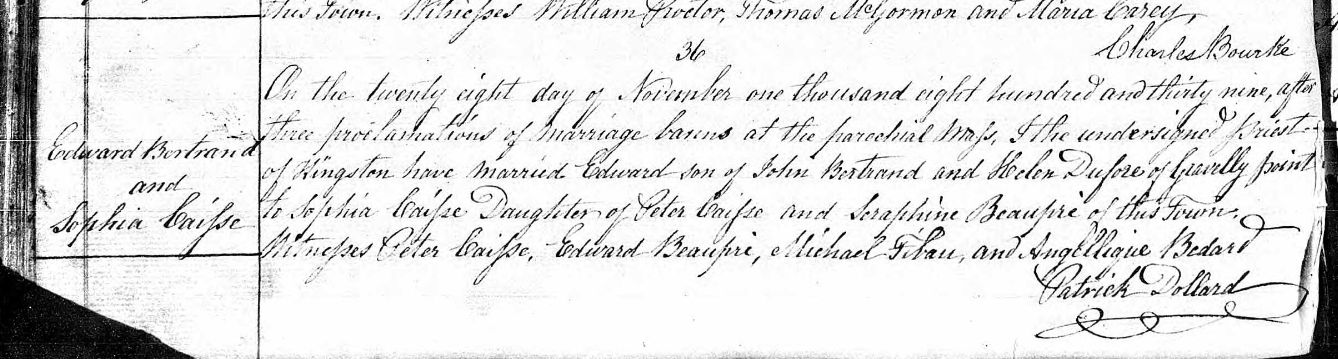 this Town. Witnesses William Proctor, Thomas McGormon and Maria Carey,
Charles Bourke
36
On the twenty eight day of November one thousand eight hundred and thirty nine, after
three proclamations of marriage banns at the parochial Mass, I the undersigned Priest
of Kingston have married Edward son of John Bertrand and Helen Dufore of Gravilly point
to Sophia Caisse Daughter of Peter Caisse and Seraphine Beaupré of this Town.
Witnesses Peter Caisse, Edward Beaupré, Michael Tibau, and Angellique Bedard
Patrick Dollard
Edward Bertrand
and
Sophia Caisse